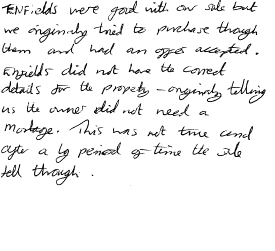 ENFields were good with our sale but
we originally tried to purchase though
them and had an offer accepted.
Enfields did not have the correct
details for the property - originally telling
us the owner did not need a
mortage. This was not true and
after a lg period of time the sale
fell through.